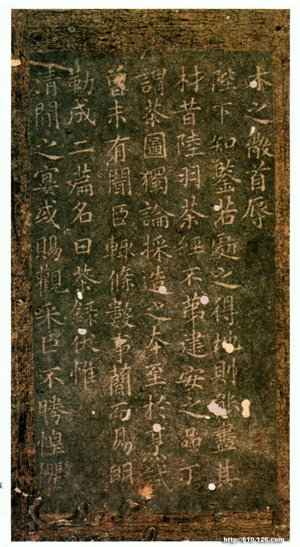 木之微首辱
陛下知鑒若處之得地則能盡其
材昔陸羽茶經不苐建安之品丁
謂茶圖獨論採造之本至於烹試
曾未有聞臣輒條數事簡而易明
勒成二篇名曰茶錄伏惟
清閒之宴或賜觀采臣不勝惶懼
http://610.126.com